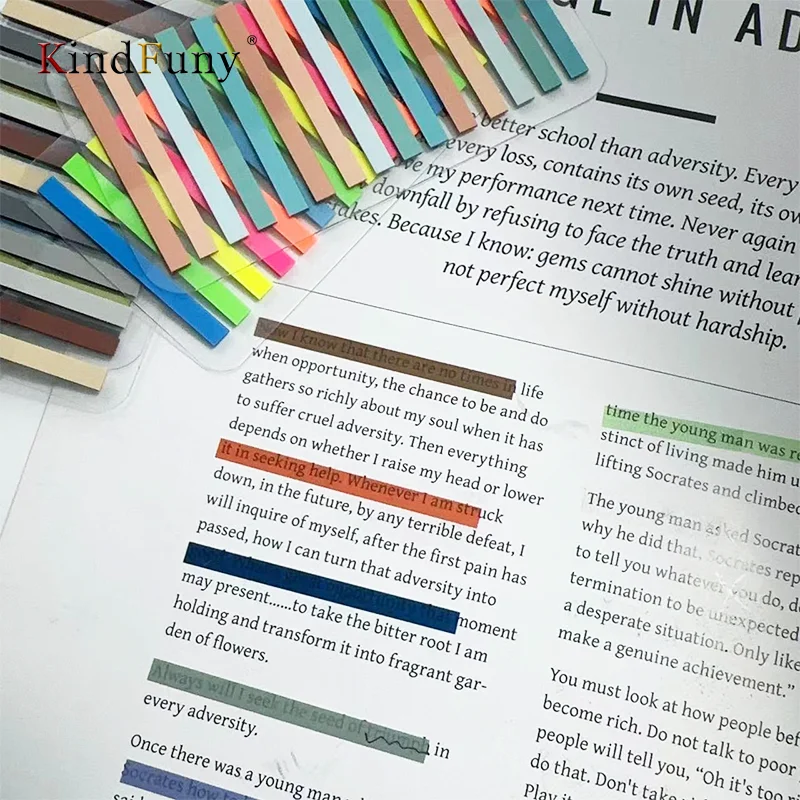 KindFuny®
GE IN AD
better school than adversity. Every
every loss, contains its own seed, its ow
ve my performance next time. Never again
downfall by refusing to face the truth and lear
takes. Because I know: gems cannot shine without
not perfect myself without hardship.
now I know that there are no times in life
when opportunity, the chance to be and do
gathers so richly about my soul when it has
to suffer cruel adversity. Then everything
depends on whether I raise my head or lower
it in seeking help. Whenever I am struck
down, in the future, by any terrible defeat, I
will inquire of myself, after the first pain has
passed, how I can turn that adversity into
opportunity that moment
may present......to take the bitter root I am
holding and transform it into fragrant gar-
den of flowers.
Always will I seek the seed of triumph in
every adversity.
Once there was a young man
Socrates how to
time the young man was re
stinct of living made him u
lifting Socrates and climbed
The young man asked Socrat
why he did that. Socrates rep
to tell you whatever you do, d
termination to be unexpected
a desperate situation. Only like
make a genuine achievement."
You must look at how people bef
become rich. Do not talk to poor
people will tell you, "Oh it's too ri
do that. Don't take
Play it